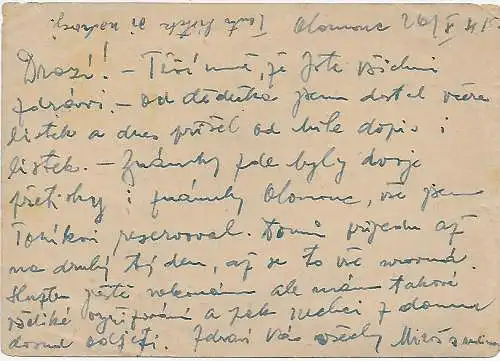 Olomouc 26/X 45.
Drazí! – Těší mně, že jste všichni
zdrávi. – Od dědečka jsem dostal včera
lístek a dnes přišel od bílé dopis i
lístek. – Známky zde byly dvoje
přetisky i známky Olomouc, vše jsem
Toníkovi reservoval. Domů přijedu až
na druhý týden, až se to vše srovná.
ještě ale mám takové
všeliké vyřizování a pak nechci z domu
odjeti. Zdraví Vás všechny Miloš